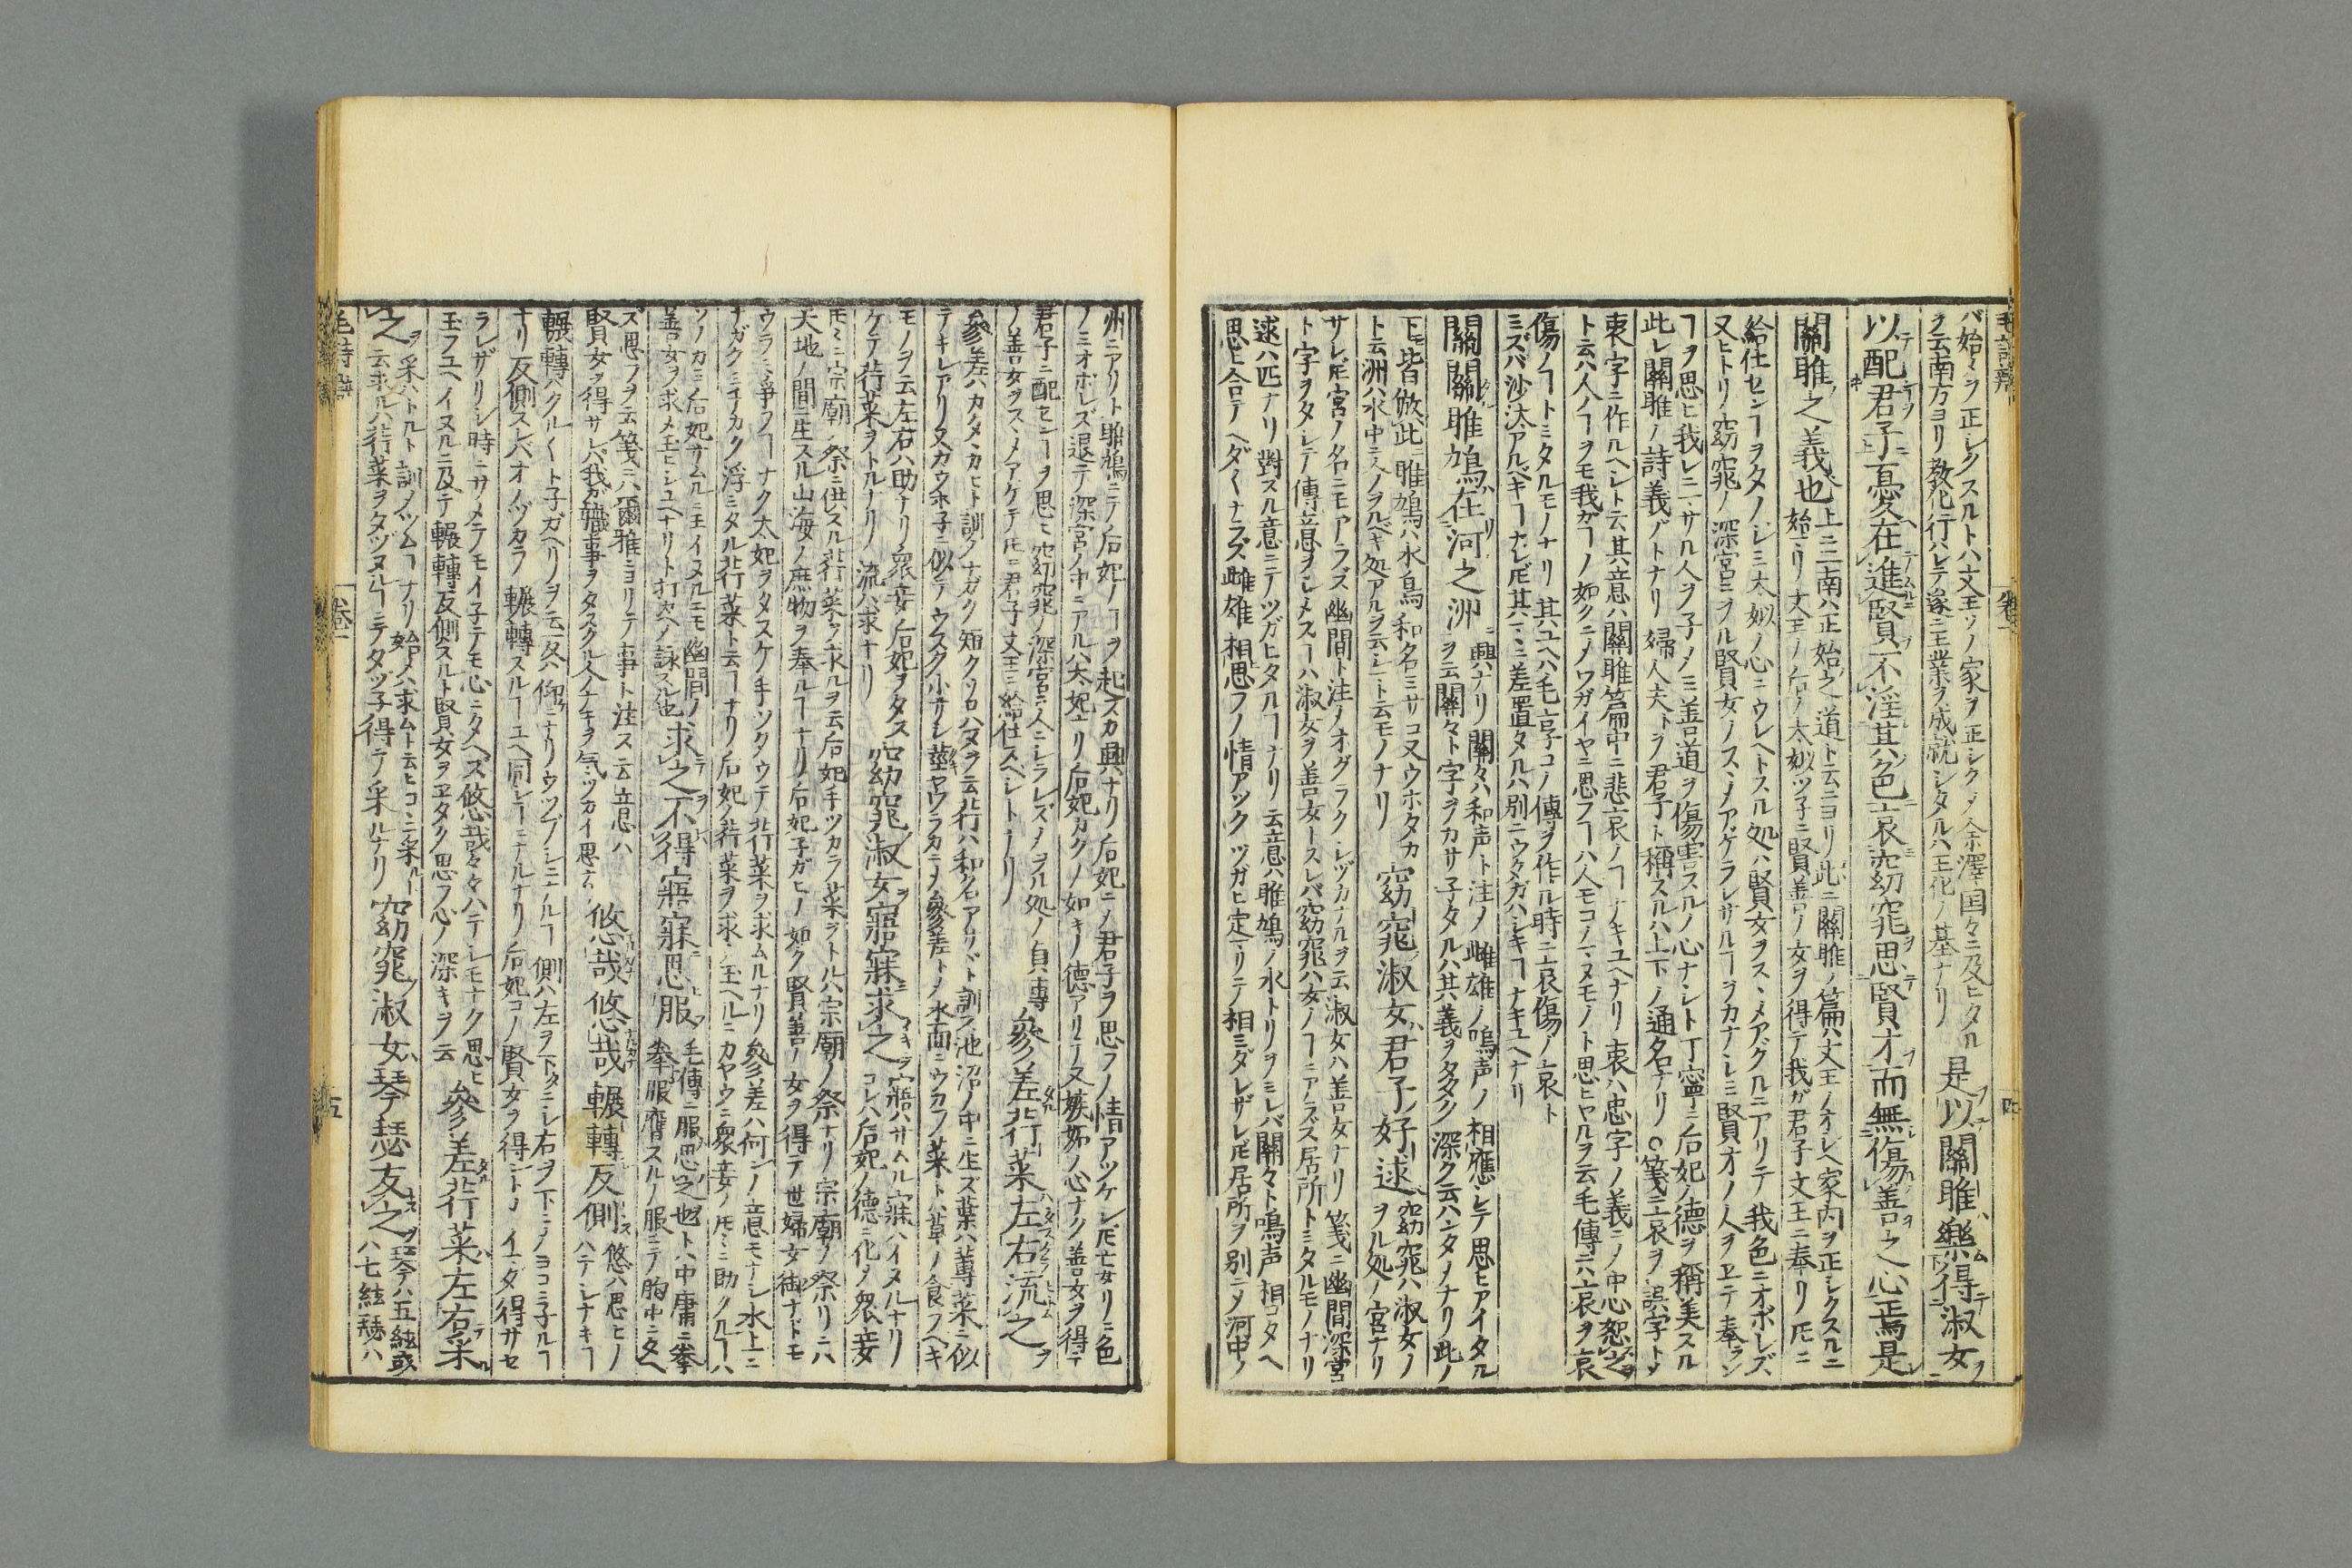 バ始メヲ正シクスルト八文王ソノ家ヲ正シクメ余澤国々ニ及ヒタル
ヲ云南方ヨリ教化行ハレテ遂ニ王業ヲ成就シタルハ王化ノ基ナリ
是以關雎樂得淑女
以配君子憂在進賢不淫其色哀窈窕思賢才而無傷善之心焉是
關雎之義也
上ニ二南ハ正始之道ト云ニヨリ此ニ關雎ノ篇ハ文王ノオレヘ家内ヲ正シクスルニ
始マリ文王ノ后ノ太姒ツ子ニ賢善ノ女ヲ得テ我ガ君子文王ニ奉リ𪜈ニ
給仕センヿヲタノシミ太姒ノ心ニウレヘトスル処ハ賢女ヲスヽメアグルニアリテ我色ニオボレズ
又ヒトリノ窈窕ノ深宮ニヲル賢女ノスヽメアゲラレサルヿヲカナシミ賢才ノ人ヲヱテ奉ラン
ヿヲ思ヒ我レニマサル人ヲ子タミ善道ヲ傷害スルノ心ナシト丁寧ニ后妃ノ德ヲ稱美スル
此レ關雎ノ詩義ゾトナリ 婦人夫トヲ君子ト稱スルハ上下ノ通名ナリ○箋ニ哀ヲ誤字トメ
衷字ニ作ルヘレト云其意ハ關雎篇中ニ悲哀ノヿナキユヘナリ衷ハ忠字ノ義ニノ中心恕之
ト云ハ人ノヿヲモ我ガヿノ如クニメワガイヤニ思フヿハ人モコノマヌモノト思ヒヤルヲ云毛傳ニハ哀ヲ哀
傷ノヿトミタルモノナリ其ユヘハ毛亨子コノ傳ヲ作ル時ニ哀傷ノ哀ト
ミズバ沙汰アルベキヿナレ𪜈其マヽニ差置タルハ別ニウタガハシキヿナキユヘナリ
關關雎鳩在河之洲
興ナリ關々ハ和声ト注ノ雌雄ノ鳴声ノ相應シテ思ヒアイタル
ヲ云關々ト字ヲカサ子タルハ其義ヲタタク深ク云ハンタメナリ此ノ
下皆倣此ニ雎鳩ハ水鳥和名ミサコ又ウホタカ
ト云洲ハ水中ニ人ノヲルベキ処アルヲ云シマト云モノナリ
窈窕淑女君子好逑
窈窕ハ淑女ノ
ヲル処ノ宮ナリ
サレ𪜈宮ノ名ニモアラズ幽間ト注メオグラクシヅカナルヲ云淑女ハ善女ナリ箋ニ幽間深宮
ト字ヲタシテ傳意ヲシメスヿハ淑女ヲ善女ースレバ窈窕ハ女ノヿニアラズ居所トミタルモノナリ
逑ハ匹ナリ對スル意ニテツガヒタルヿナリ云意ハ雎鳩ノ水トリヲミレバ關々ト鳴声相コタヘ
思ヒ合テヘダヽナラズ雌雄相思フノ情アツクツガヒ定マリテ相ミダレザレ𪜈居所ヲ別ニメ河中ノ
洲ニアリト雎鳩ニテ后妃ノヿヲ起スカ興ナリ后妃ニメ君子ヲ思フノ情アツケレ𪜈亡女リニ色
ノミオボレズ退テ深宮ノ中ニアルハ太姒ナリ后妃カクノ如キノ德アリテ又嫉妬ノ心ナク善女ヲ得テ
君子ニ配センヿヲ思ヒ窈窕ノ深宮ニ人ニシラレズメヲル処ノ貞專
ノ善女ヲスヽメアゲテ𪜈ニ君子文王ニ給仕スベシトナリ
參差荇菜左右流之
參差ハカタヽカヒト訓メナガク短クソロハヌヲ云荇ハ和名アサヾト訓ズ池沼ノ中ニ生ズ葉ハ蓴菜ニ似
テキレアリ又カウホ子ニ似テウスク小サシ莖ヤワラカニメ參差トメ水面ニウカフ菜トハ草ノ食フヘキ
モノヲ云左右ハ助ナリ衆妾ノ后妃ヲタス
ケテ荇菜ヲトルナリ流ハ求ナリ
窈窕淑女寤寐求之
寤ハサムル寐ハイヌルナリ
コレハ后妃ノ德ニ化メ衆妾
𪜈ニ宗廟ノ祭ニ供スル荇菜ヲ求ルヲ云后妃手ツカラ菜ヲトルハ宗廟ノ祭ナリ宗廟ノ祭リニハ
天地ノ間ニ生スル山海ノ庶物ヲ奉ルヿナリ后妃子ガヒノ如ク賢善ノ女ヲ得テ世婦女御ナドモ
ウラミ爭フヿナク太姒ヲタスケ手ソタウテ荇菜ヲ求ムルナリ參差ハ何ンノ意モナシ水上ニ
ナガクミチカク浮ミタル荇菜ト云ヿナリ后妃ノ荇菜ヲ求メ玉ヘルニカヤウニ衆妾ノ𪜈ニ助ノルヿハ
ソノカミ后妃サムルニ玉イヌルニモ幽間ノ
善女ヲ求メ玉ヒシユヘナリト打カヘメ詠スル也
求之不得寤寐思服
毛傳ニ服思之也トハ中庸ニ拳
拳服膺スルノ服ニテ胸中ニタヘ
ズ思フヲ云箋ニハ爾雅ニヨリテ事ト注ス云意ハ
賢女ヲ得サレバ我ガ職事ヲタスクル人ナキヲ気ヅカイ思フ
悠哉悠哉輾轉反側
悠ハ思ヒノ
ハテシナキヿ
輾轉ハクル〱ト子ガヘリヲ云反ハ仰ニナリウツブシニナルヿ側ハ左ヲ下タニシ右ヲ下ニメヨコニ子ルヿ
ナリ反側スレバオノヅカラ輾轉スルヿユヘ同シヿニナルナリ后妃コノ賢女ヲ得ントメイマダ得サセ
ラレザリシ時ニサメテモイ子テモ心ニタヘズ悠哉々々ハテシモナク思ヒ
玉フユヘイヌルニ及テ輾轉反側スルト賢女ヲヱタク思フ心ノ深キヲ云
參差荇菜左右采
之
采ハトルト訓メツムヿナリ始メハ求ムト云ヒコヽニ采ルー
云求ルハ荇菜ヲタヅヌルヿニテタヅ子得テノ采ルナリ
窈窕淑女琴瑟友之
琴ハ五絃或
ハ七絃瑟ハ
毛詩辨
卷一
五